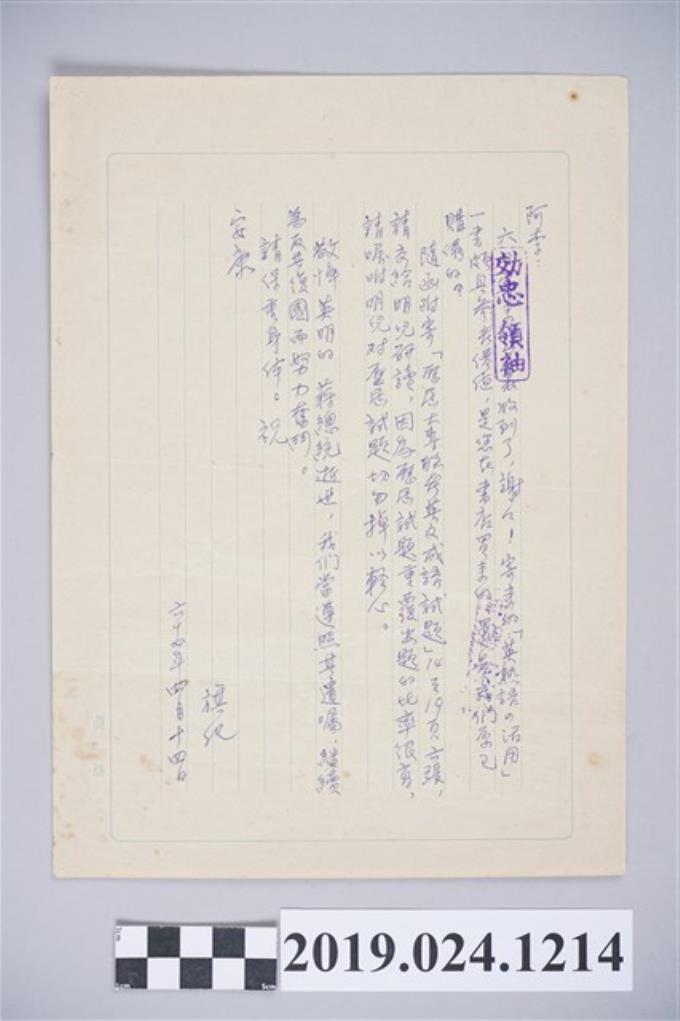 阿李：
六 收到了，謝々！寄來的「英熟語の活用」
一書頗具參考價值，是您在書店買來的還是我們原已
購備的？
隨函附寄「歷屆大專聯考英文成語試題」14至19頁六張，
請交給明兒研讀，因為歷屆試題重覆出題的比率很高，
請囑咐明兒对歷屆試題切勿掉以輕心。
敬悼英明的 蔣總統逝世，我們當遵照其遺囑，繼續
為反共復國而努力奮鬥。
請保重身体。祝
安康
旗化
六十四年四月十四日
効忠領袖
2019.024.1214